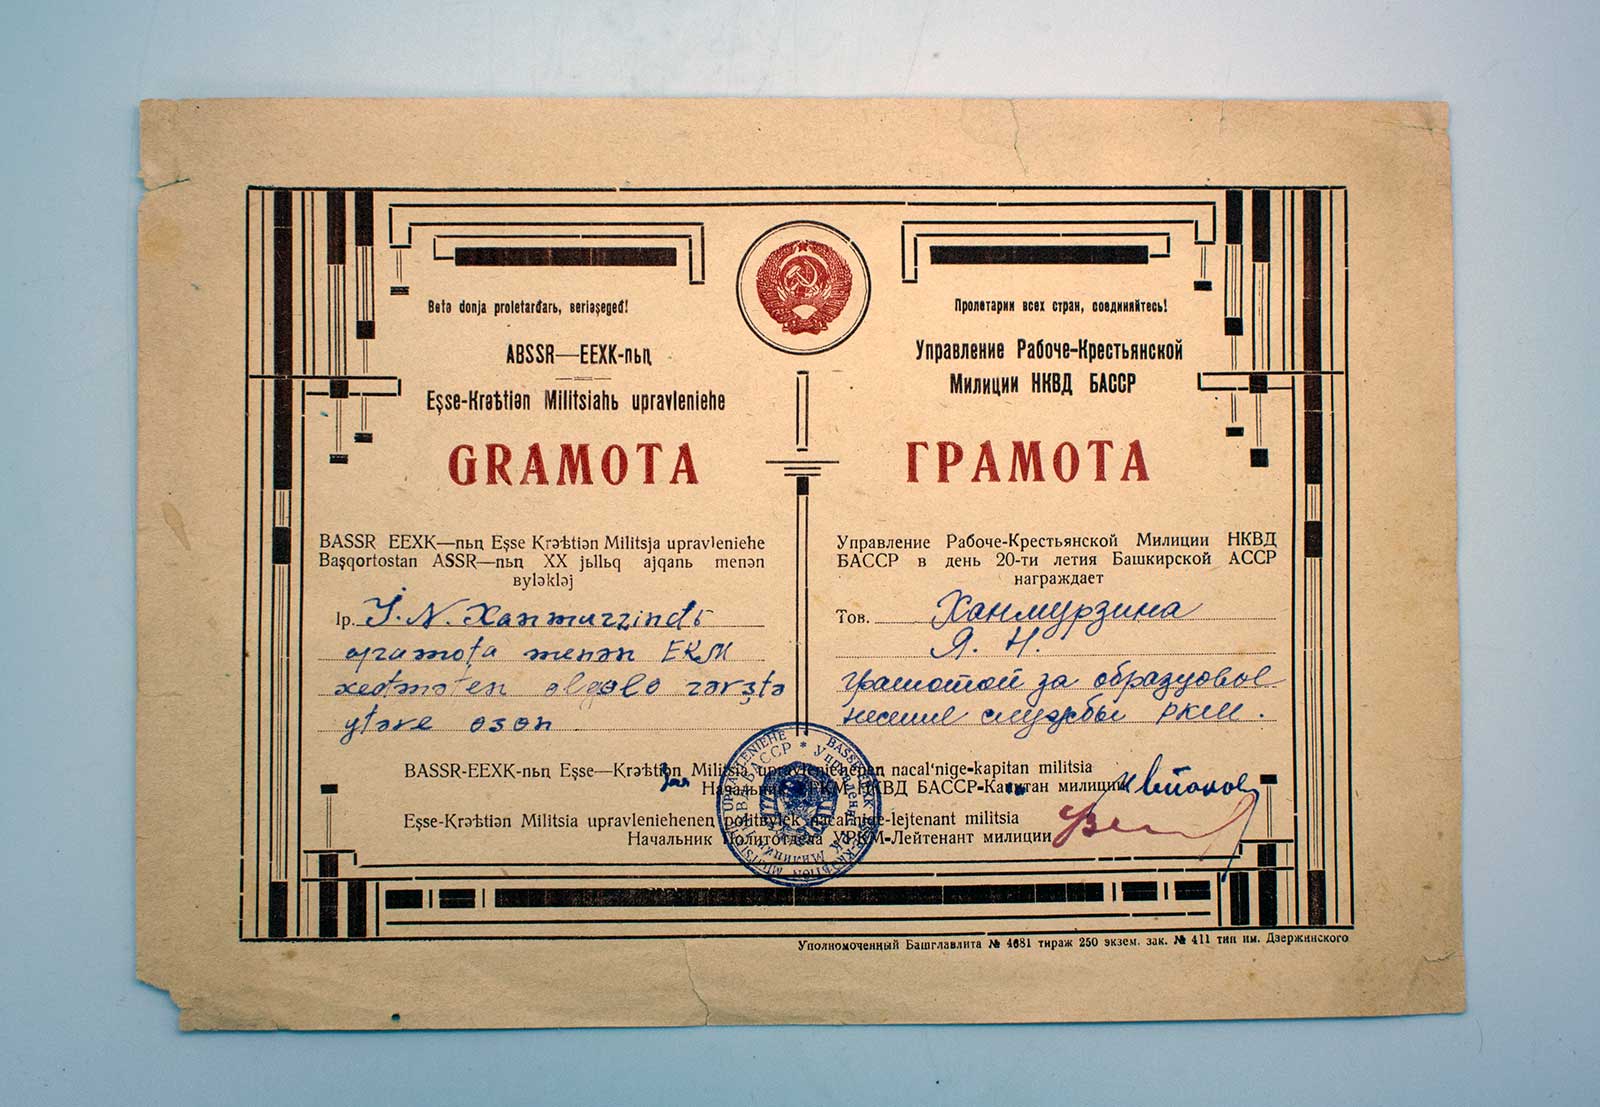 Betə donja proletarđarь, beriaşegeđ!
ABSSR—EEXK-nьꞑ
Eşse-Krəѣtiən Militsiahь upravleniehe
GRAMOTA
BASSR EEXK—nьꞑ Eşse Krəѣtiən Militsja upravleniehe
Başqortostan ASSR—nьꞑ XX jьllьq ajqanь menən
byləkləj
Ip. J. N. Xanmurzinđь
gramota menən EKM
xeđməten
ytəve өsөn
Пролетарии всех стран, соединяйтесь!
Управление Рабоче-Крестьянской
Милиции НКВД БАССР
ГРАМОТА
Управление Рабоче-Крестьянской Милиции НКВД
БАССР в день 20-ти летия Башкирской АССР
награждает
Тов. Ханмурзина
Я. Н.
грамотой за образцовое
несение службы РКМ.
BASSR-EEXK-nьꞑ Eşse—Krəѣtiən Militsia upravleniehenen nacal'nige-kapitan militsia
Зам Начальник УРКМ НКВД БАССР-Капитан милиции
Eşse-Krəѣtiən Militsia upravleniehenen politbylek nacalnige-lejtenant militsia
Начальник Политотдела УРКМ-Лейтенант милиции
Уполномоченный Башглавлита № 4681 тираж 250 экзем. зак. № 411 тип им. Дзержинского